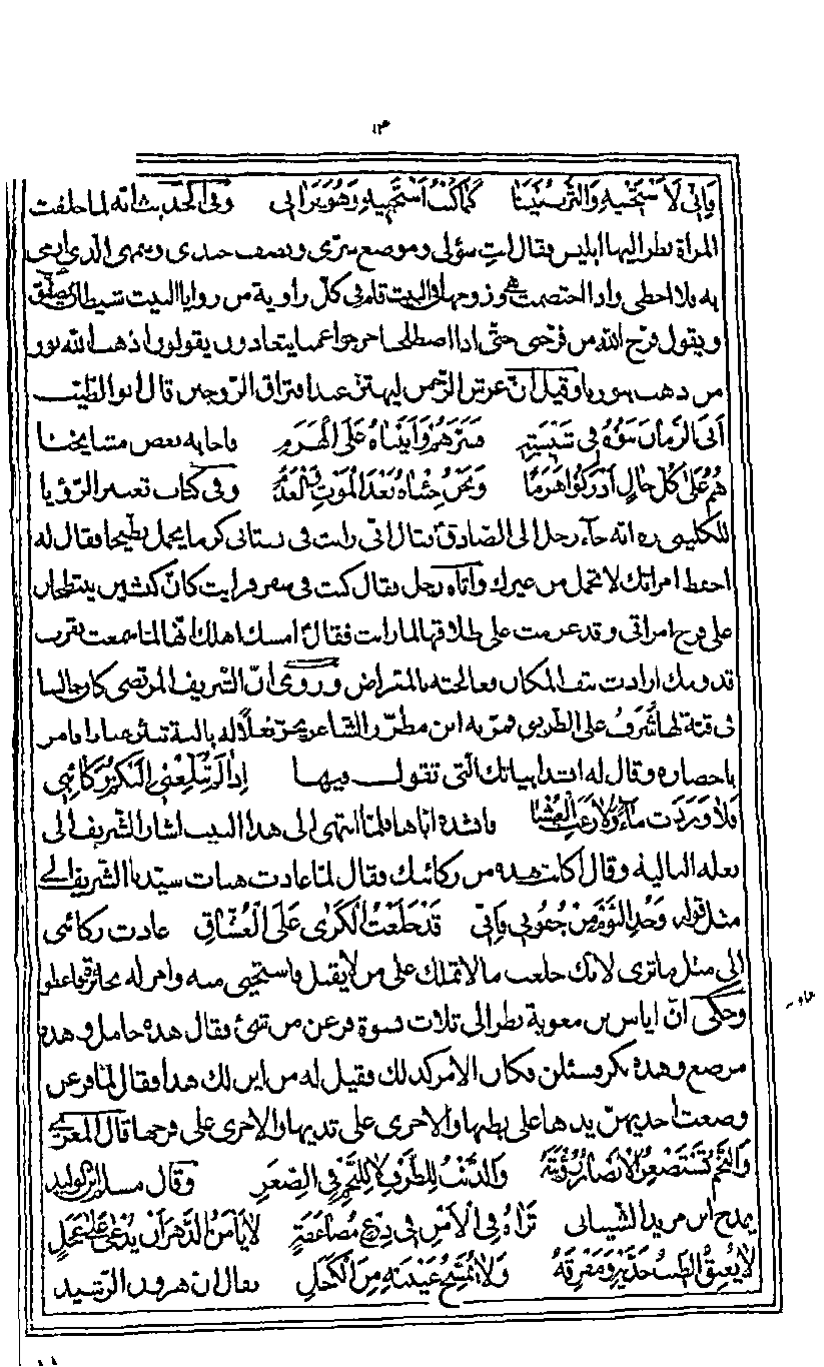 وإني لأستحييه والترب بيننا كما كنت أستحييه وهو يراني وفي الحديث انه لما خلقت
المرأة نظر اليها ابليس فقال انت سؤلي وموضع سري ونصف جندي وسهمي الذي ارمي
به فلا اخطي واذا اختصمت هي وزوجها في البيت قام في كل زاوية من زوايا البيت شيطان يصفق
ويقول فرح الله من فرحني حتى اذا اصطلحا خرجوا عميا يتعادون يقولون اذهب الله نور
من ذهب بنورنا وقيل ان عرش الرحمن ليهتز عند افتراق الزوجين قال ابو الطيب
أتى الزمان بنوه في شبيبته فسرهم وأتيناه على الهرم فاجابه بعض مشايخنا
هم على كل حال أدركوا هرما ونحن جئناه بعد الموت والعدم وفي كتاب تعبير الرؤيا
للكليني ره انه جاء رجل الى الصادق فقال اني رأيت في بستاني كرما يحمل بطيخا فقال له
احفظ امرأتك لا تحمل من غيرك وأتاه رجل فقال كنت في سفر فرايت كان كبشين ينتطحان
على فرج امرأتي وقد عزمت على طلاقها لما رايت فقال امسك اهلك انها لما سمعت بقرب
قدومك ارادت نتف المكان فعالجته بالمقراض وروي ان الشريف المرتضى كان جالسا
في قبة لها تشرف على الطريق فمر به ابن مطرز الشاعر يجر نعلا له بالية تثير غبارا فامر
باحضاره وقال له انشد ابياتك التي تقول فيها إذا لم تبلغني إليكم ركائبي
فلا وردت ماء ولا رعت العشبا فانشده اياها فلما انتهى الى هذا البيت اشار الشريف الى
نعله البالية وقال أكانت هذه من ركائبك فقال لما عادت هبات سيدنا الشريف الى
مثل قوله وخذ النوم من جفوني فإني قد خلعت الكرى على العشاق عادت ركائبي
الى مثل ما ترى لانك خلعت ما لا تملك على من لا يقبل فاستحيى منه وامر له بجائزة فاعطو
وحكي ان اياس بن معوية نظر الى ثلاث نسوة فزعن من شئ فقال هذه حامل وهذه
مرضع وهذه بكر فسئلن فكان الامر كذلك فقيل له من اين لك هذا فقال لما فزعن
وضعت احديهن يدها على بطنها والاخرى على ثديها والاخرى على فرجها قال المعري
والنجم تستصغر الأبصار رؤيته والذنب للطرف لا للنجم في الصغر وقال مسلم ابن الوليد
يمدح ابن مزيد الشيباني تراه في الأمن في درع مضاعفة لا يأمن الدهر أن يدعى على عجل
لا يعبق الطيب خديه ومفرقه ولا يمسح عينيه من الكحل يقال ان هرون الرشيد